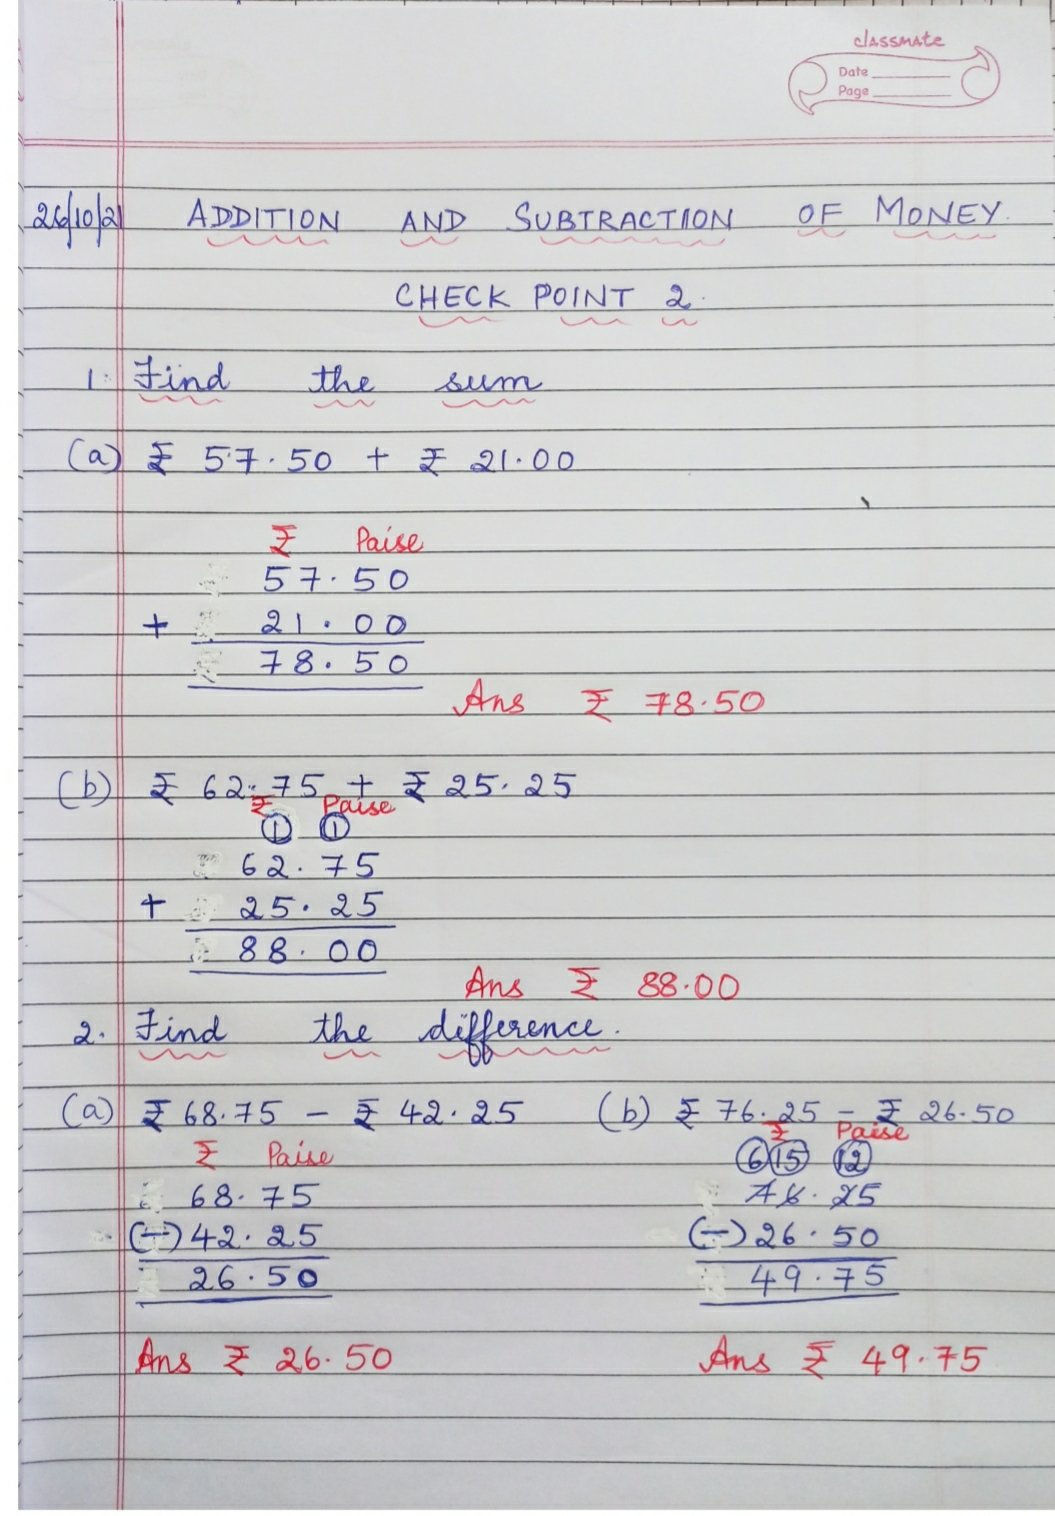 classmate
Date
Page
26/10/21 ADDITION AND SUBTRACTION OF MONEY.
CHECK POINT 2.
1. Find the sum
(a) ₹ 57.50 + ₹ 21.00
₹ Paise
57.50
+ 21.00
78.50
Ans ₹ 78.50
(b) ₹ 62.75 + ₹ 25.25
₹ Paise
1 1
62.75
+ 25.25
88.00
Ans ₹ 88.00
2. Find the difference.
(a) ₹ 68.75 – ₹ 42.25 (b) ₹ 76.25 – ₹ 26.50
₹ Paise ₹ Paise
6 15 12
68.75 76.25
(–) 42.25 (–) 26.50
26.50 49.75
Ans ₹ 26.50 Ans ₹ 49.75